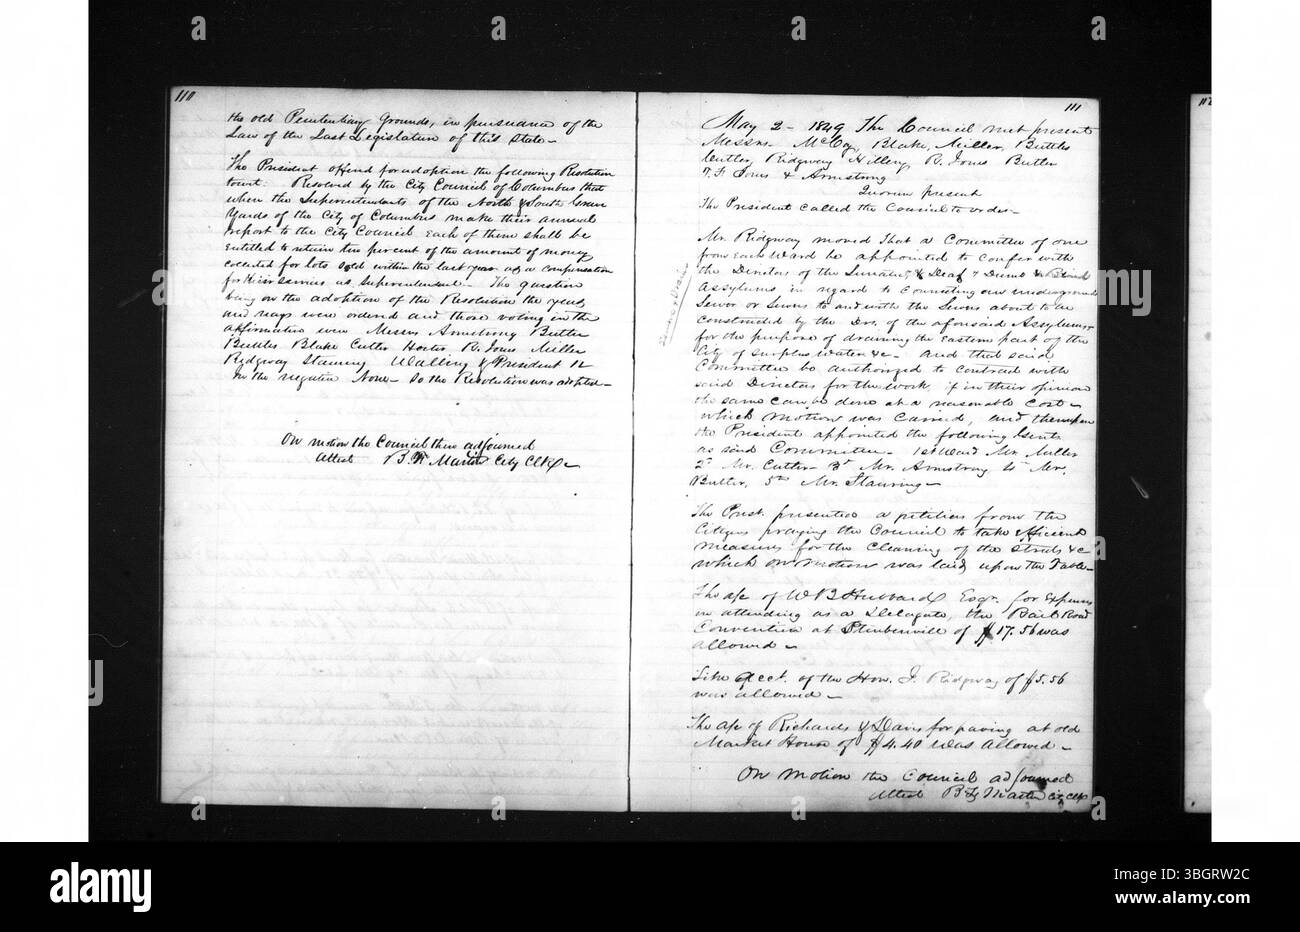 110
the old Penitentiary Grounds, in pursuance of the
Law of the Last Legislature of this State —
The President offered for adoption the following Resolution
towit: Resolved by the City Council of Columbus that
when the Superintendants of the North & South Grave
Yards of the City of Columbus make their annual
report to the City Council Each of them shall be
Entitled to retain ten percent of the amount of money
collected for lots sold within the last year as a compensation
for their services as Superintendent. The question
being on the adoption of the Resolution the yeas
and nays were ordered and those voting in the
affirmative were Messrs Armstrong Butler
Buttles Blake Cutler R. Jones Miller
Ridgway Stauring Walling & President 12
In the negative None — So the Resolution was adopted —
On motion the Council then adjourned
Attest B. F. Martin City Clk —
111
May 2 — 1849 The Council met present
Messrs — McCoy, Blake, Miller, Buttles
Cutler, Ridgway R. Jones Butler
T. F. Jones & Armstrong
Quorum present
The President called the Council to order —
Mr. Ridgway moved That a Committee of one
from Each Ward be appointed to confer with
the Directors of the Lunatic, & Deaf & Dumb & Blind
Assylums in regard to Connecting our underground
Sewer or Sewers to and with the Sewers about to be
constructed by the Drs. of the aforesaid Assylums,
for the purpose of draining the Eastern part of the
City of surplus water &c — And that said
Committee be authorized to contract with
said Directors for the work, if in their opinion
the same can be done at a reasonable cost —
which motion was carried, and thereupon
the President appointed the following Gents
as said Committee — 1st Ward Mr. Miller
2d Mr. Cutler — 3d Mr. Armstrong 4th Mr.
Butler, 5th Mr. Stauring —
The Prest. presented a petition from the
Citizens praying the Council to take efficient
measures for the Cleaning of the Streets &c
which on motion was laid upon the Table —
The a/c of W B Hubbard Esqr. for Expenses
in attending as a Delegate, the Rail Road
Convention at Steubenville of $17.56 was
allowed —
Like acct. of the Hon. J. Ridgway of $5.56
was allowed —
The a/c of Richards & Davis for paving at old
Market House of $4.40 was allowed —
On motion the Council adjourned
Attest B. F. Martin City Clk
112
alamy
Image ID: 3BGRW2C
www.alamy.com